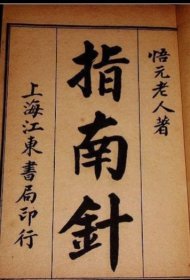 悟元老人著
指南針
上海江東書局印行